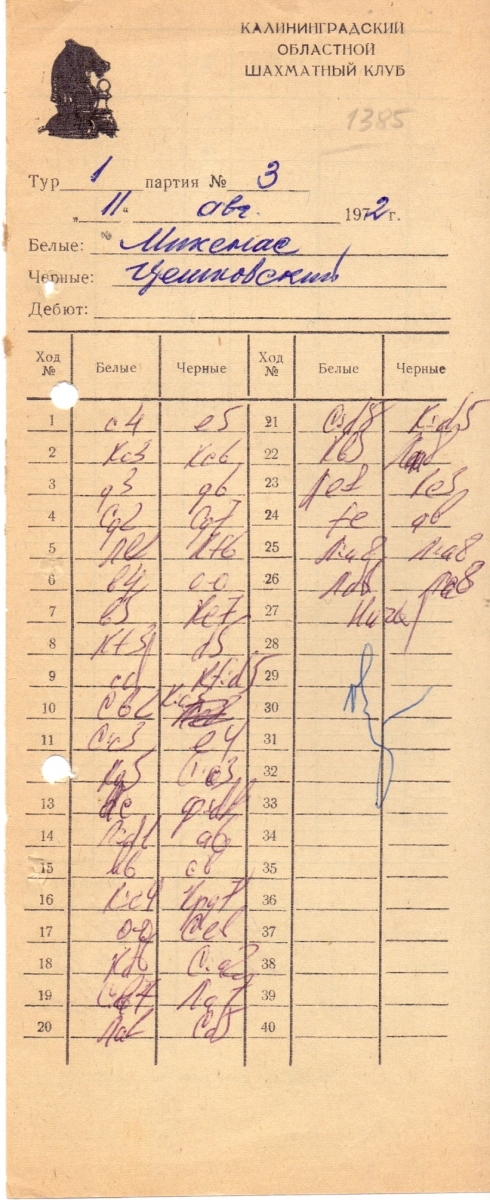 КАЛИНИНГРАДСКИЙ
ОБЛАСТНОЙ
ШАХМАТНЫЙ КЛУБ
1385
Тур 1 партия № 3
„11" авг. 1972 г.
Белые: Микенас
Черные: Цешковский
Дебют:
Ход № Белые Черные Ход № Белые Черные
1 c4 e5 21
2 Кc3 Кc6 22
3 g3 g6 23 Кe3
4 Сg2 Сg7 24 fe
5 Лb1 Кf6 25 Л:a8 Л:a8
6 b4 0-0 26 Л:a8
7 b5 Кe7 27 Ничья
8 Кf3 d5 28
9 cd Кf:d5 29
10 Сb2 30
11 С:c3 e4 31
Кg5 С:c3 32
13 dc Ф:d1 33
14 Л:d1 34
15 35
16 К:e4 Крg7 36
17 0-0 37
18 С:a2 38
19 С:b7 Лa7 39
20 Сd5 40